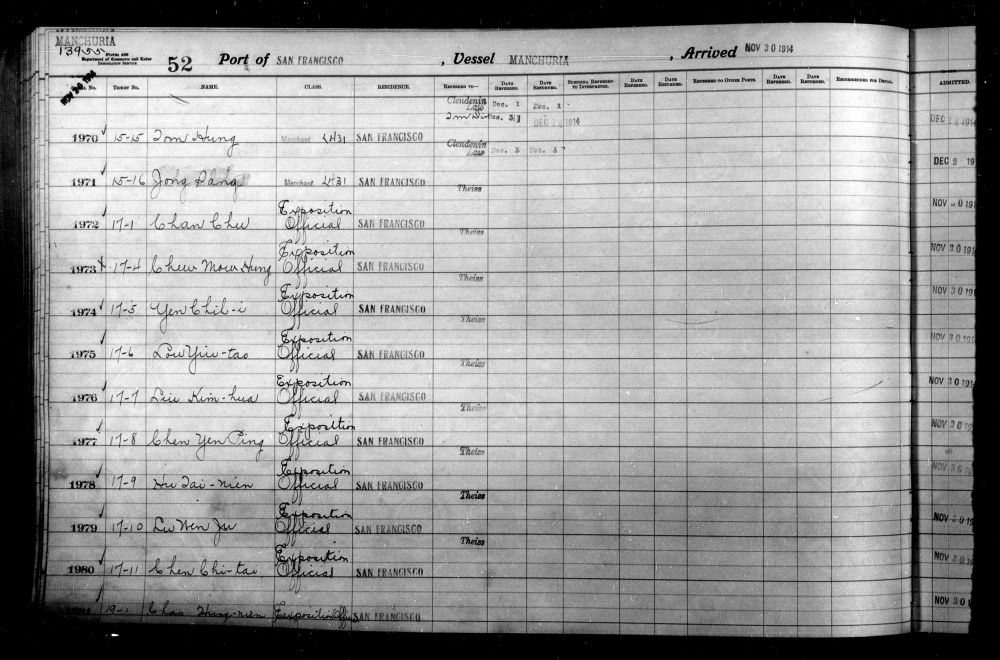 MANCHURIA
13955
Form 430
Department of Commerce and Labor
IMMIGRATION SERVICE
52 Port of SAN FRANCISCO, Vessel MANCHURIA, Arrived NOV 30 1914
NOV 30 1914
No. TICKET NO. NAME. CLASS. RESIDENCE. REFERRED TO— DATE REFERRED. DATE RETURNED. REFERRED TO INTERPRETER. DATE REFERRED. DATE RETURNED. REFERRED TO OTHER PORTS. DATE REFERRED. DATE RETURNED. RECOMMENDED FOR DENIAL. ADMITTED.
Clendenin
Law Dec. 1 Dec. 2
Dec. 31 DEC 1914
1970 15-15 Tom Hung Merchant 2431 SAN FRANCISCO DEC 14 1914
Clendenin
Law Dec. Dec.
1971 15-16 Jong Dang Merchant 2431 SAN FRANCISCO DEC 2 19
Theiss
1972 17-1 Chan Chu Exposition Official SAN FRANCISCO NOV 30 191
Theiss
1973 17-4 Chew Mow Hung Exposition Official SAN FRANCISCO NOV 30 191
Theiss
1974 17-5 Yen Chih-i Exposition Official SAN FRANCISCO NOV 30 191
Theiss
1975 17-6 Lou Yiu-tao Exposition Official SAN FRANCISCO NOV 30 191
Theiss
1976 17-7 Liu Kim-hua Exposition Official SAN FRANCISCO NOV 30 191
Theiss
1977 17-8 Chen Yen Ping Exposition Official SAN FRANCISCO NOV 30 19
Theiss
1978 17-9 Hu Tai-nien Exposition Official SAN FRANCISCO NOV 30 19
Theiss
1979 17-10 Lu Wen Ju Exposition Official SAN FRANCISCO NOV 30 19
Theiss
1980 17-11 Chen Chi-tai Exposition Official SAN FRANCISCO NOV 30 191
19-1 Chao Hing-nien Exposition Offic SAN FRANCISCO NOV 30 191